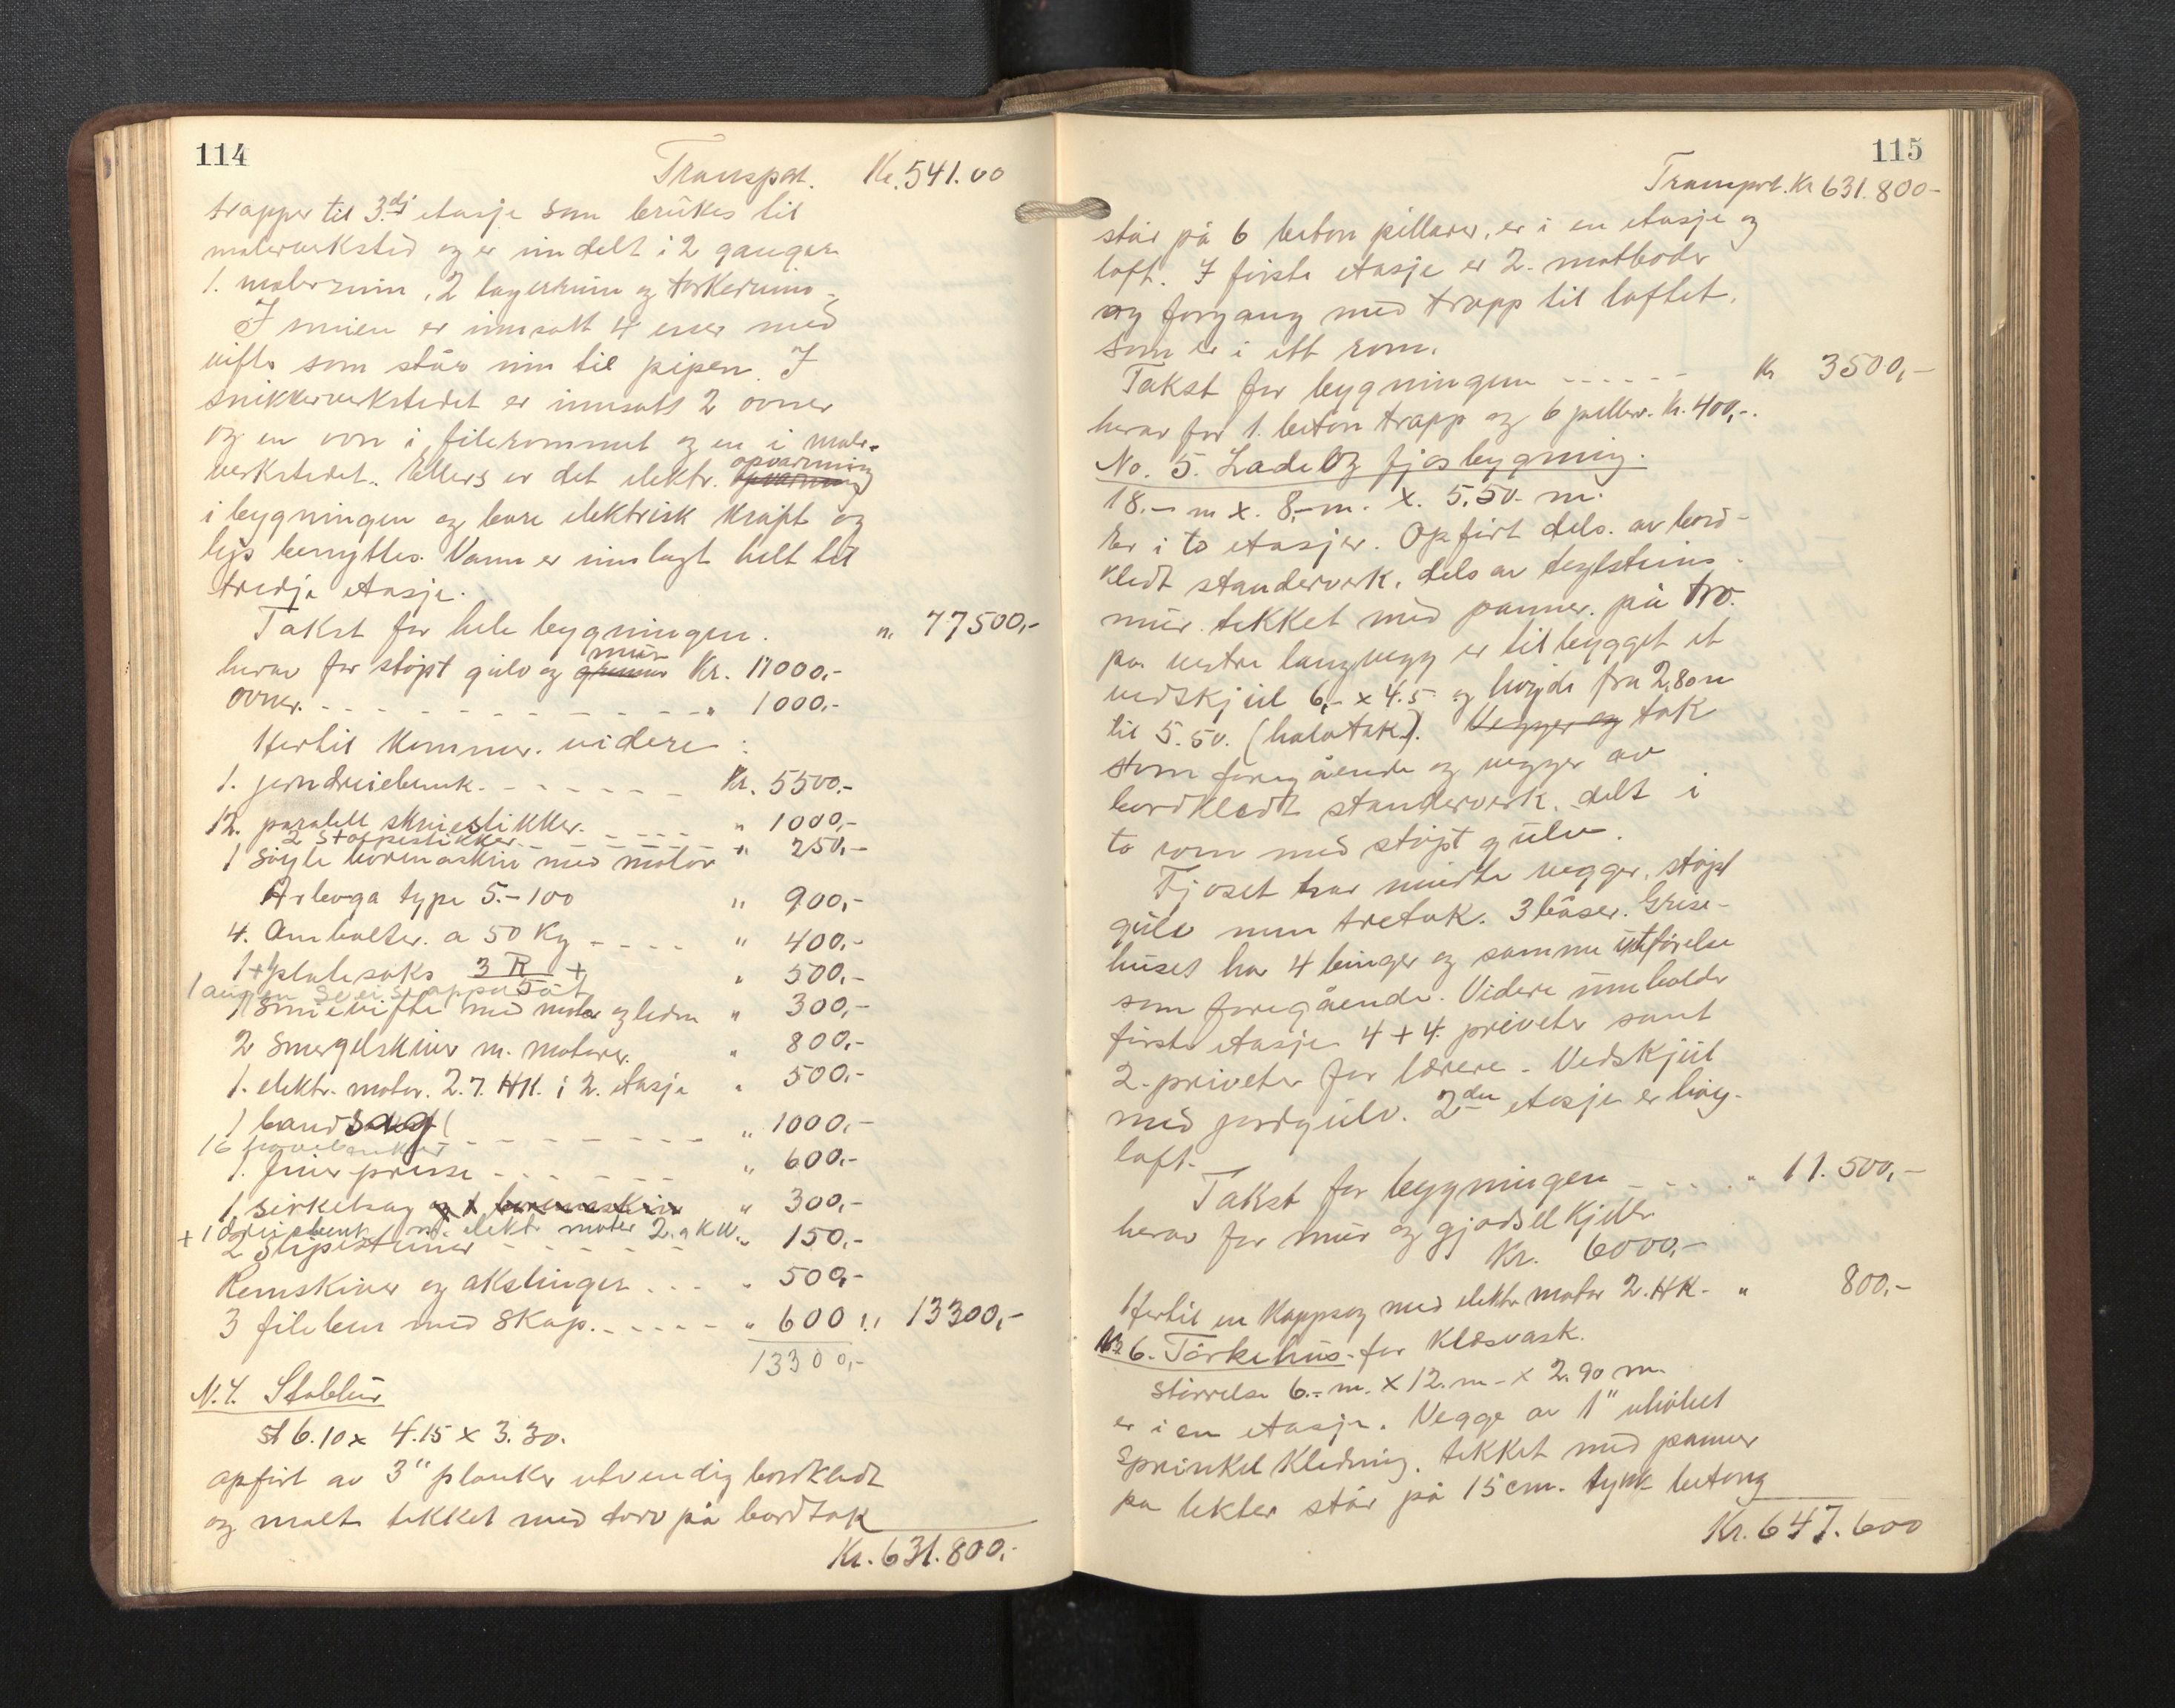 114
Transport. Kr. 541.00
trapper til 3.dj etasje som brukes til
malerverksted og er inndelt i 2 ganger
1. malerrum, 2 lagerrum og torkerum.
I smien er innsatt 4 esser med
vifte som står inn til pipen. I
snikkerverkstedet er innsatt 2 ovner
og en ovn i filerommet og en i maler-
verkstedet. Ellers er det elektr. opvarming
i bygningen og bare elektrisk kraft og
lys benyttes. Vann er innlagt helt til
tredje etasje.
Takst for hele bygningen. " 77500,-
herav for støpt gulv og mur Kr. 17000,-
ovner. - - - " 1000,-
Hertil kommer videre:
1. jerndreiebenk. - - - Kr. 5500,-
12. paralell skruestikker. - - - " 1000,-
2 støppestikker - - - " 250,-
1 søyle boremaskin med motor
Arboga type 5.-100 " 900,-
4. Ambolter. a 50 Kg - - - " 400,-
1 + platesaks 3 R 5 + " 500,-
1 sveiseapparat
1 smievifte med motor og ledn " 300,-
2 Smergelskiver m. motorer. " 800,-
1. elektr. motor. 2.7. HK. i 2. etasje " 500,-
1 bandsag - - - " 1000,-
16 høvelbenker
1. finerpresse - - - " 600,-
1. sirkelsag og 1 boremaskin " 300,-
+ 1 dreiebenk m. elektr motor 2.9 KW.
2 Slipestener - - - " 150,-
Remskiver og akslinger - - - " 500,-
3 filebenk med skap. - - - " 600 " 13300,-
13300,-
N. 4. Stabbur
st 6.10 x 4.15 x 3.30.
opført av 3" planker utvendig bordkledt
og malt tekket med torv på bordtak
Kr. 631.800,-
115
Transport. Kr 631.800-
står på 6 beton pillarer, er i en etasje og
loft. I første etasje er 2. matboder
og forgang med trapp til loftet,
som er i ett rom.
Takst for bygningen - - - Kr 3500,-
herav for 1. beton trapp og 6 pillar. Kr. 400,-.
No. 5. Lade og fjosbygning.
18.- m x. 8,- m. x. 5,50. m.
Er i to etasjer. Opført dels. av bord-
kledt standerverk, dels av teglsteins-
mur. tekket med panner. på tro.
på vestre langvegg er tilbygget et
vedskjul 6,- x 4.5 og høyde fra 2,80 m
til 5.50. (halvtak). Vegger og tak
som foregående og vegger av
bordkledt standerverk. delt i
to rom med støpt gulv.
Fjoset har murte vegger, støpt
gulv men tretak. 3 båser. Grise-
huset har 4 binger og samme utførelse
som foregående. Videre inneholder
første etasje 4 + 4. priveter samt
2. priveter for lærere - Vedskjul
med jordgulv. 2den etasje er høy-
loft.
Takst for bygningen - - - " 11.500,-
herav for mur og gjødselkjeller
Kr. 6000,-
Hertil en kappsag med elektr. motor 2. HK. - " 800,-
No 6. Törkehus. for klesvask.
størrelse 6.- m. x 12. m - x 2.90 m.
er i en etasje. Vegge av 1" uhøvlet
sprinkel kledning. tekket med panner
på lekter står på 15 cm. tykk betong
Kr. 647.600